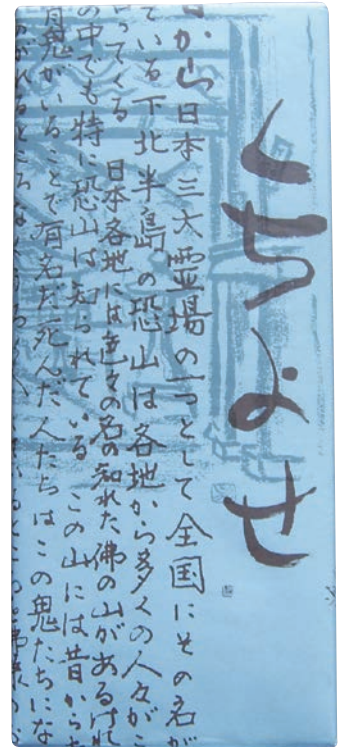 くちよせ
昔から日本三大霊場の一つとして全国にその名が
ている下北半島の恐山は各地から多くの人々がこ
ってくる 日本各地には色々の名の知れた佛の山があるけれ
の中でも特に恐山は知られている この山には昔から
鬼がいることで有名だ死んだ人たちはこの鬼たちにな